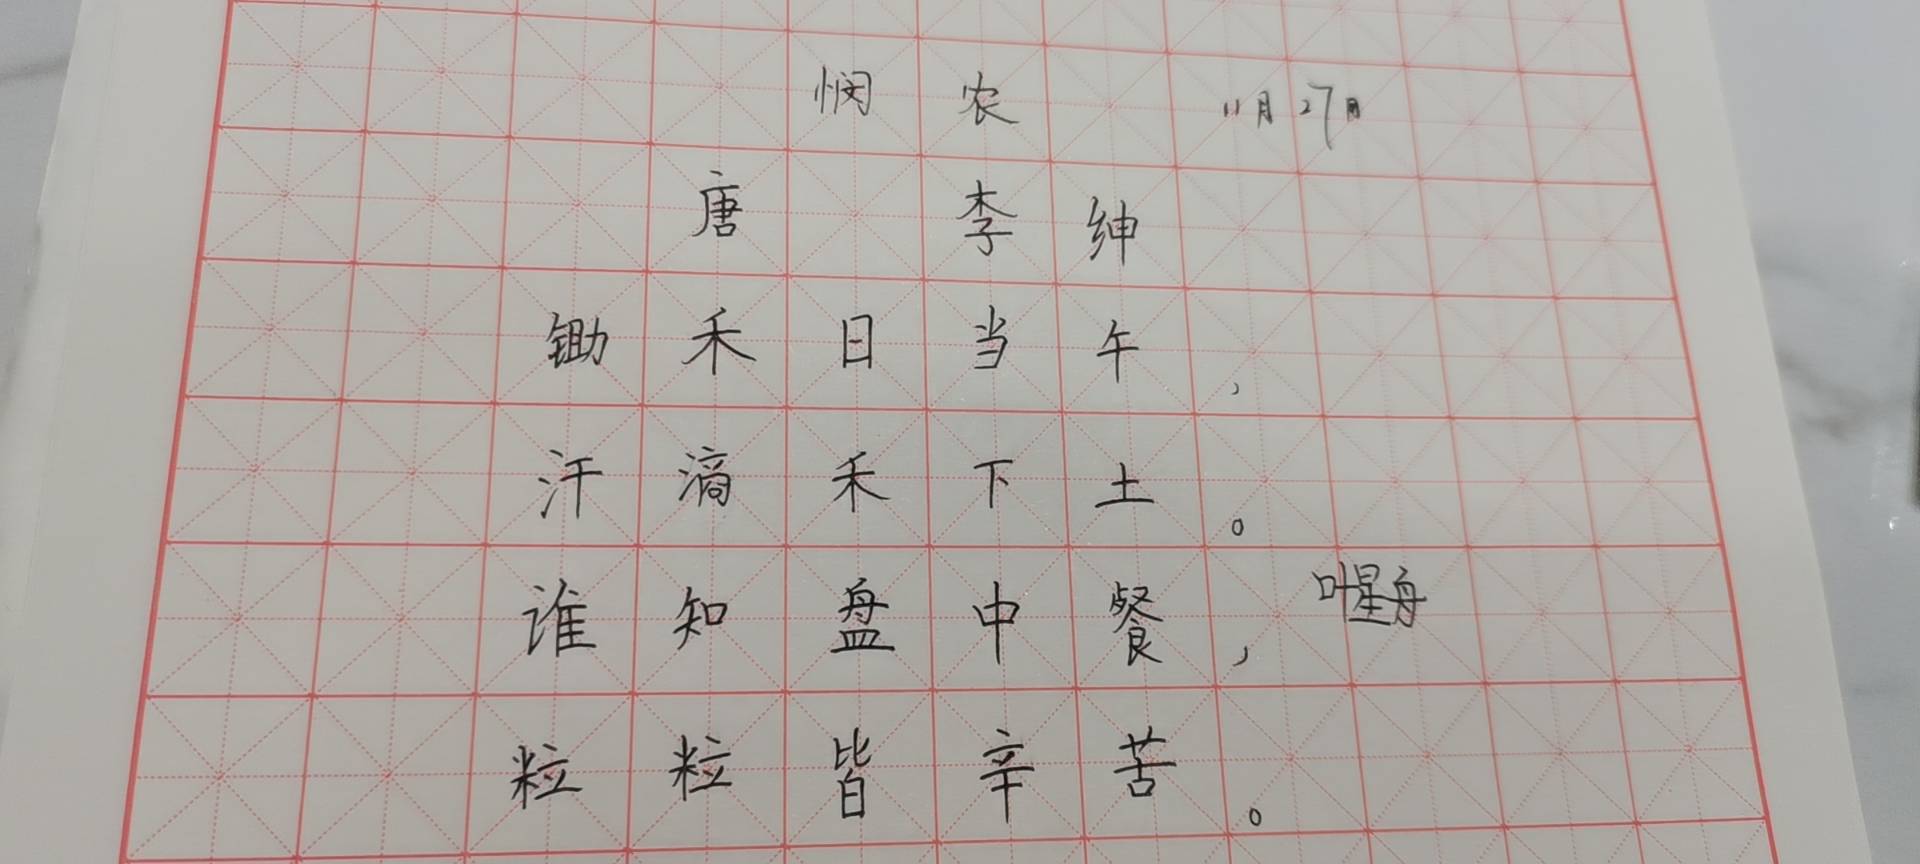 悯农 11月27日
唐 李绅
锄禾日当午，
汗滴禾下土。
谁知盘中餐，
叶星舟
粒粒皆辛苦。